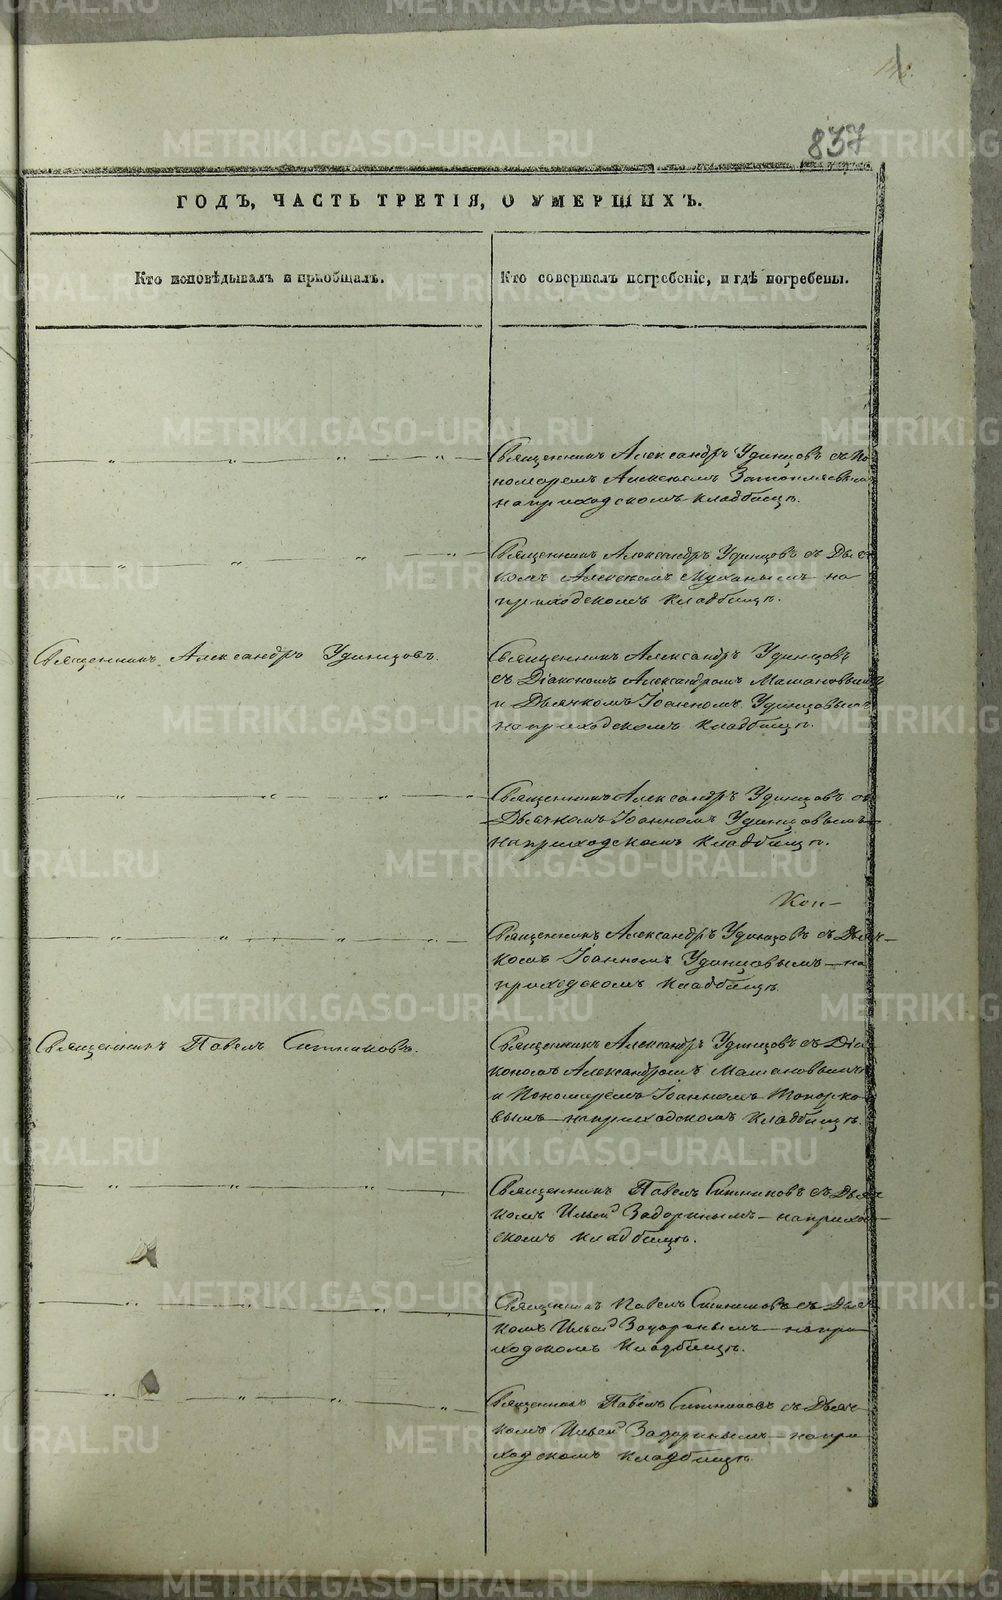 837
ГОДЪ, ЧАСТЬ ТРЕТІЯ, О УМЕРШИХЪ.
Кто исповѣдывалъ и пріобщалъ.
Кто совершалъ погребеніе, и гдѣ погребены.
Священникъ Александръ Удинцовъ съ По-
номаремъ Алексѣемъ
на приходскомъ кладбищѣ.
Священникъ Александръ Удинцовъ съ Дьяч-
комъ Алексѣемъ Мухинымъ на
приходскомъ кладбищѣ.
Священникъ Александръ Удинцовъ.
Священникъ Александръ Удинцовъ
съ Діакономъ Александромъ Матановымъ
и Дьячкомъ Іоанномъ Удинцовымъ
на приходскомъ кладбищѣ.
Священникъ Александръ Удинцовъ съ
Дьячкомъ Іоанномъ Удинцовымъ
на приходскомъ кладбищѣ.
Коп-
Священникъ Александръ Удинцовъ съ Дьяч-
комъ Іоанномъ Удинцовымъ на
приходскомъ кладбищѣ.
Священникъ Павелъ Ситниковъ.
Священникъ Александръ Удинцовъ съ Діа-
кономъ Александромъ Матановымъ
и Пономаремъ Іоанномъ Топорко-
вымъ на приходскомъ кладбищѣ.
Священникъ Павелъ Ситниковъ съ Дьяч-
комъ Ильей Задоринымъ на приход-
скомъ кладбищѣ.
Священникъ Павелъ Ситниковъ съ Дьяч-
комъ Ильей Задоринымъ на при-
ходскомъ кладбищѣ.
Священникъ Павелъ Ситниковъ съ Дьяч-
комъ Ильей Задоринымъ на при-
ходскомъ кладбищѣ.
METRIKI.GASO-URAL.RU